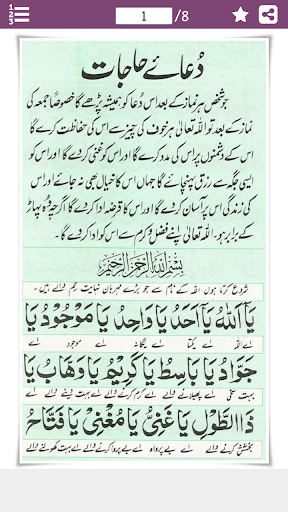 1 /8
دُعائے حاجات
جو شخص ہر نماز کے بعد اس دُعا کو ہمیشہ پڑھے گا خصوصاً جمعہ کی
نماز کے بعد تو اللہ تعالیٰ ہر خوف کی چیز سے اس کی حفاظت کرے گا
اس کے دشمنوں پر اس کی مدد کرے گا اور اس کو غنی کر دے گا اور اس کو
ایسی جگہ سے رزق پہنچائے گا جہاں اس کا خیال بھی نہ جائے اور اس
کی زندگی اس پر آسان کر دے گا اور اس کا قرضہ ادا کر دے گا اگرچہ وہ پہاڑ
کے برابر ہو۔ اللہ تعالیٰ اپنے فضل و کرم سے اس کو ادا کر دے گا۔
بِسْمِ اللّٰهِ الرَّحْمٰنِ الرَّحِيْمِ
شروع کرتا ہوں اللہ کے نام سے جو بڑے مہربان نہایت رحم والے ہیں۔
يَآ اَللّٰهُ يَآ اَحَدُ يَا وَاحِدُ يَا مَوْجُوْدُ يَا
اے اللہ اے یکتا اے یگانہ اے موجود اے
جَوَّادُ يَا بَاسِطُ يَا كَرِيْمُ يَا وَهَّابُ يَا
بہت سخی اے پھیلانے والے اے کرم کرنے والے اے بہت دینے والے اے
ذَاالطَّوْلِ يَا غَنِيُّ يَا مُغْنِيْ يَا فَتَّاحُ
بخشش کرنے والے اے بے پرواہ اے بے پرواہ کرنے والے اے بہت کھولنے والے